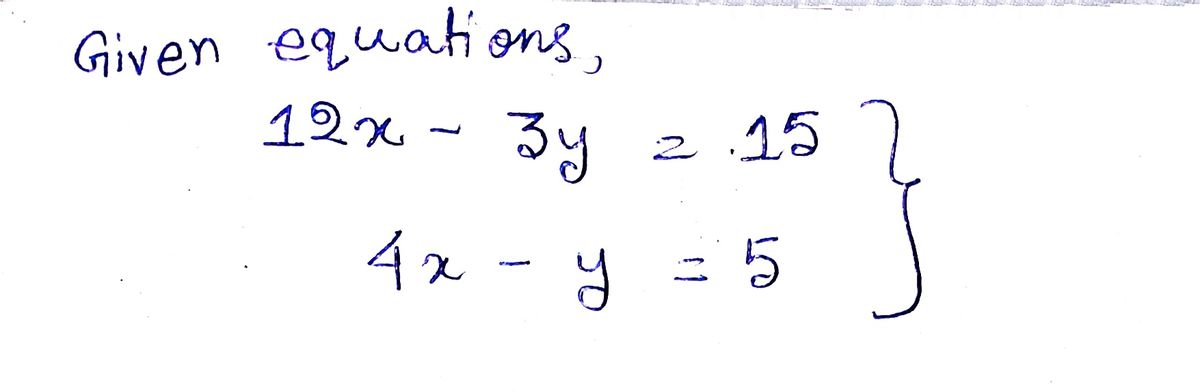 Given equations,
12x - 3y = 15
4x - y = 5